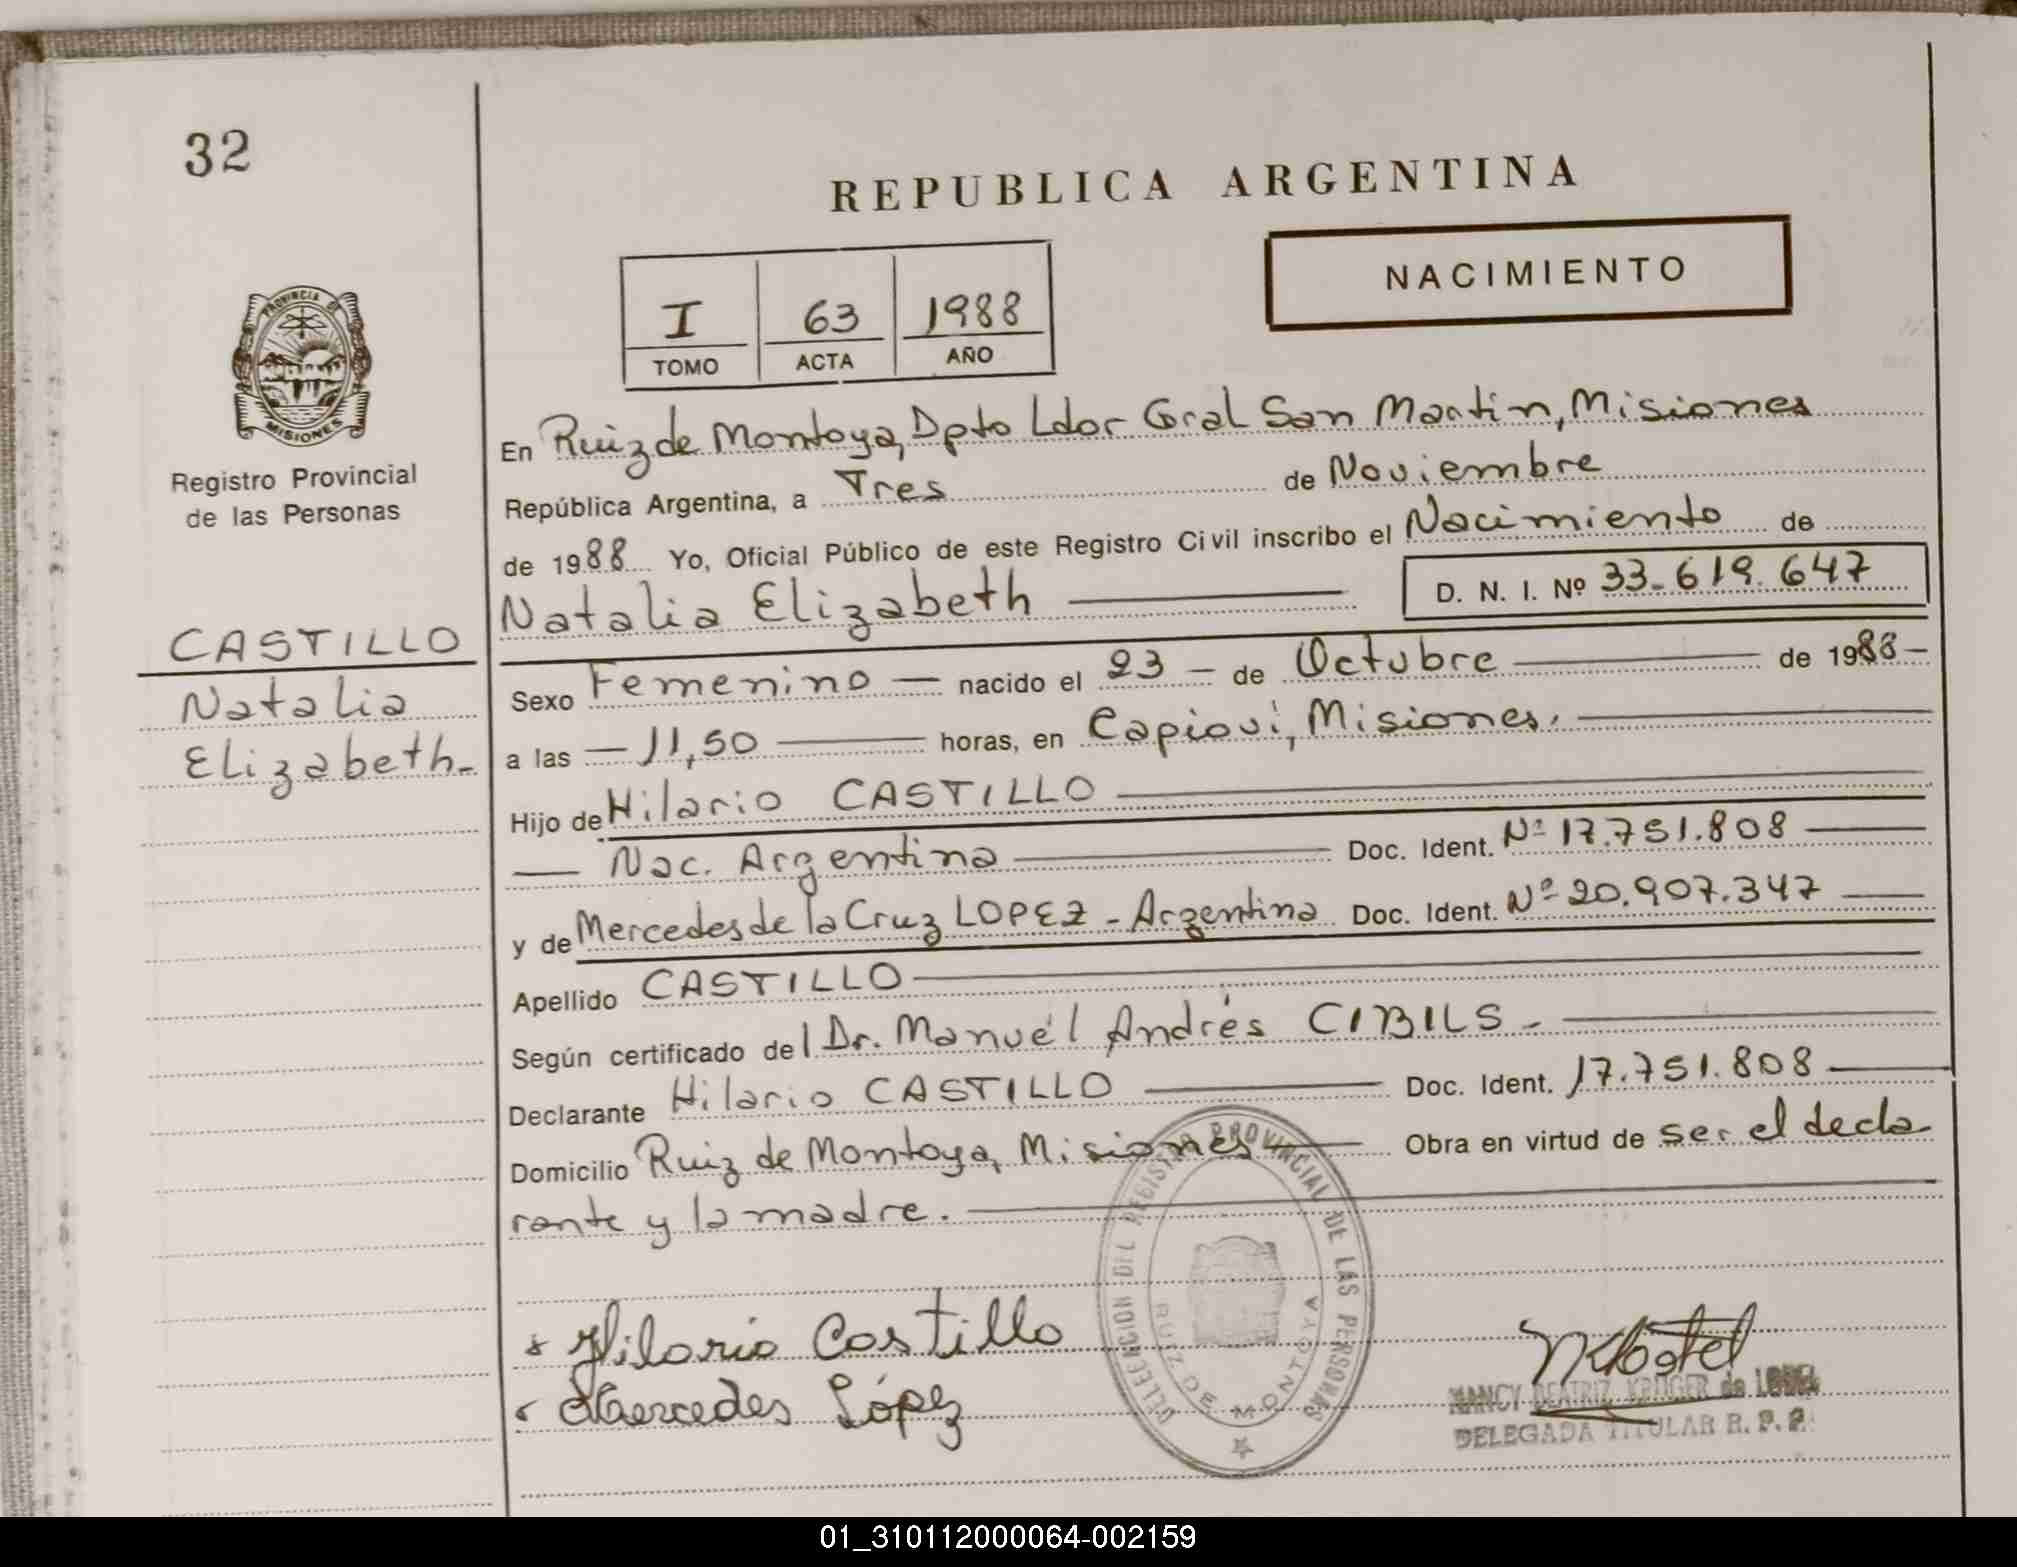 32
REPUBLICA ARGENTINA
NACIMIENTO
I 63 1988
TOMO ACTA AÑO
PROVINCIA DE
MISIONES
Registro Provincial
de las Personas
CASTILLO
Natalia
Elizabeth-
En Ruiz de Montoya, Dpto Ldor Gral San Martin, Misiones
República Argentina, a Tres de Noviembre
de 1988 Yo, Oficial Público de este Registro Civil inscribo el Nacimiento de
Natalia Elizabeth D. N. I. Nº 33.619.647
Sexo Femenino — nacido el 23 — de Octubre — de 1988 —
a las — 11,50 — horas, en Capioví, Misiones.
Hijo de Hilario CASTILLO
— Nac. Argentina — Doc. Ident. Nº 17.751.808 —
y de Mercedes de la Cruz LOPEZ - Argentina Doc. Ident. Nº 20.907.347 —
Apellido CASTILLO
Según certificado del Dr. Manuel Andrés CIBILS -
Declarante Hilario CASTILLO — Doc. Ident. 17.751.808 —
Domicilio Ruiz de Montoya, Misiones — Obra en virtud de ser el decla
rante y la madre.
DELEGACION DEL REGISTRO PROVINCIAL DE LAS PERSONAS
RUIZ DE MONTOYA
Hilario Castillo
Mercedes López
NANCY BEATRIZ KRUGER de
DELEGADA TITULAR R. P. P.
01_310112000064-002159